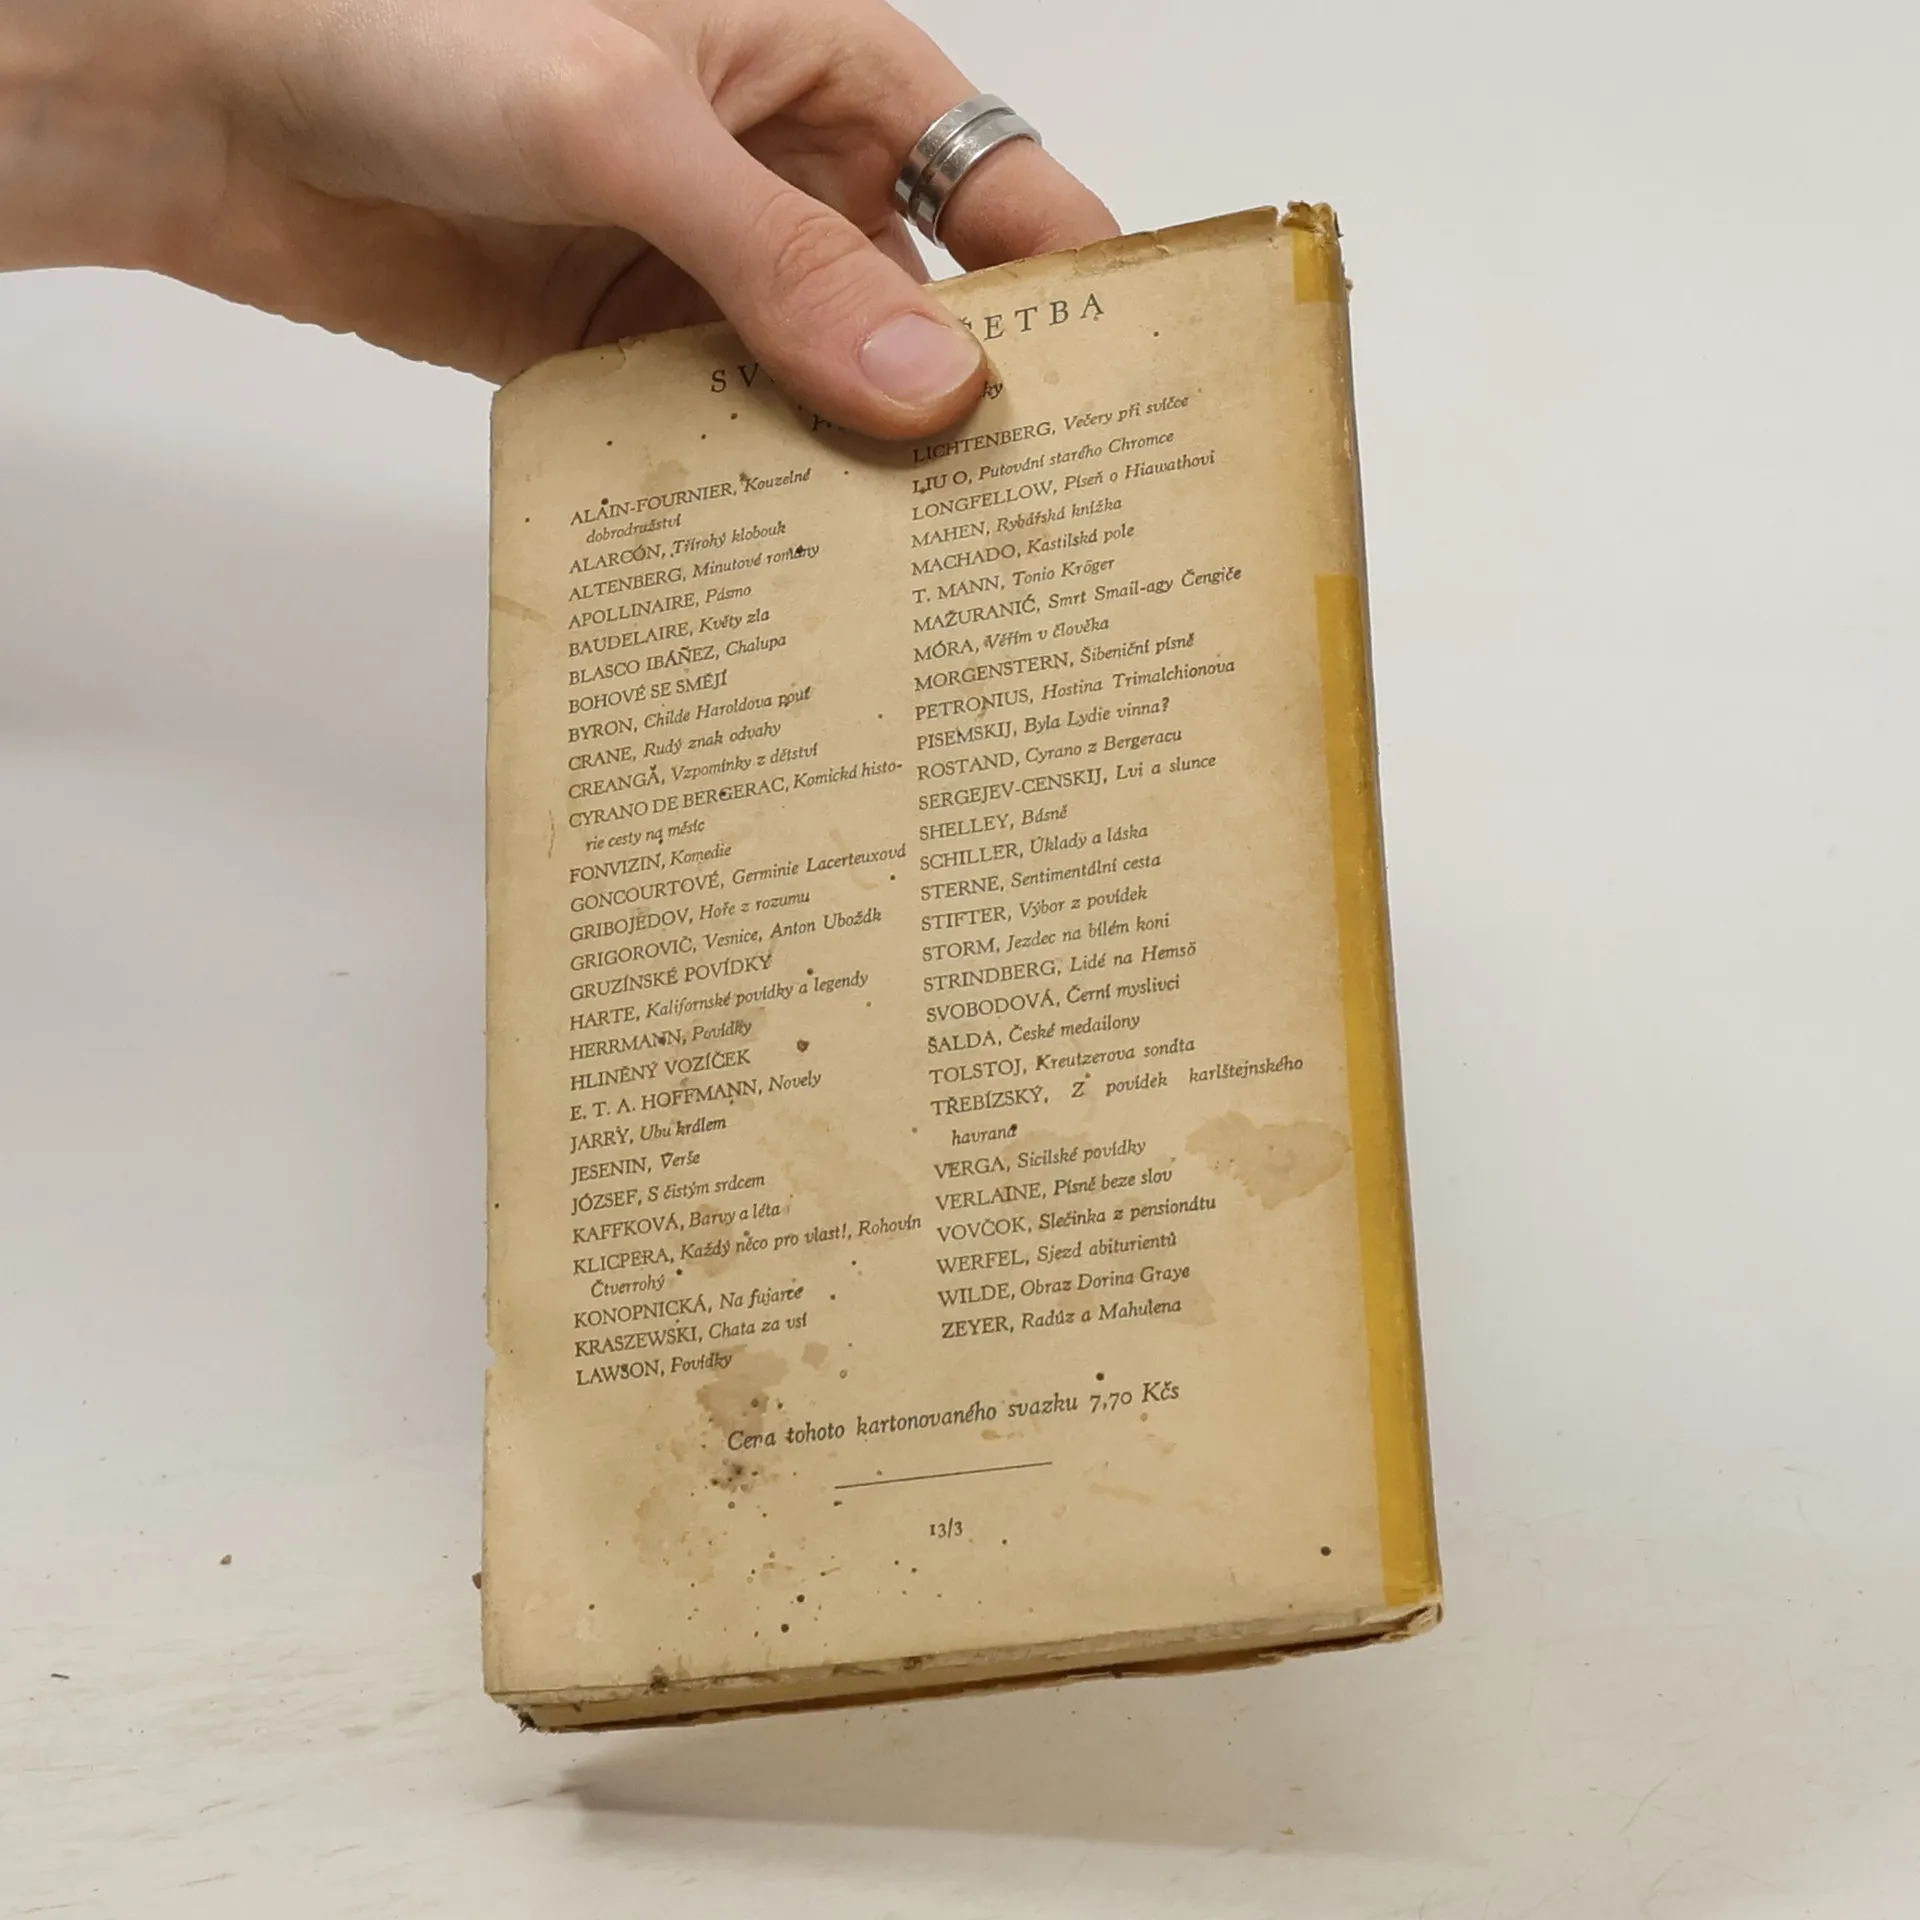 SV ČETBA
ky
ALAIN-FOURNIER, Kouzelné
dobrodružství
ALARCÓN, Třírohý klobouk
ALTENBERG, Minutové romány
APOLLINAIRE, Pásmo
BAUDELAIRE, Květy zla
BLASCO IBÁÑEZ, Chalupa
BOHOVÉ SE SMĚJÍ
BYRON, Childe Haroldova pouť
CRANE, Rudý znak odvahy
CREANGĂ, Vzpomínky z dětství
CYRANO DE BERGERAC, Komická histo-
rie cesty na měsíc
FONVIZIN, Komedie
GONCOURTOVÉ, Germinie Lacerteuxová
GRIBOJEDOV, Hoře z rozumu
GRIGOROVIČ, Vesnice, Anton Ubožák
GRUZÍNSKÉ POVÍDKY
HARTE, Kalifornské povídky a legendy
HERRMANN, Povídky
HLINĚNÝ VOZÍČEK
E. T. A. HOFFMANN, Novely
JARRY, Ubu králem
JESENIN, Verše
JÓZSEF, S čistým srdcem
KAFFKOVÁ, Barvy a léta
KLICPERA, Každý něco pro vlast!, Rohovín
Čtverrohý
KONOPNICKÁ, Na fujarce
KRASZEWSKI, Chata za vsí
LAWSON, Povídky
LICHTENBERG, Večery při svíčce
LIU O, Putování starého Chromce
LONGFELLOW, Píseň o Hiawathovi
MAHEN, Rybářská knížka
MACHADO, Kastilská pole
T. MANN, Tonio Kröger
MAŽURANIĆ, Smrt Smail-agy Čengiče
MÓRA, Věřím v člověka
MORGENSTERN, Šibeniční písně
PETRONIUS, Hostina Trimalchionova
PISEMSKIJ, Byla Lydie vinna?
ROSTAND, Cyrano z Bergeracu
SERGEJEV-CENSKIJ, Lvi a slunce
SHELLEY, Básně
SCHILLER, Úklady a láska
STERNE, Sentimentální cesta
STIFTER, Výbor z povídek
STORM, Jezdec na bílém koni
STRINDBERG, Lidé na Hemsö
SVOBODOVÁ, Černí myslivci
ŠALDA, České medailony
TOLSTOJ, Kreutzerova sonáta
TŘEBÍZSKÝ, Z povídek karlštejnského
havrana
VERGA, Sicilské povídky
VERLAINE, Písně beze slov
VOVČOK, Slečinka z pensionátu
WERFEL, Sjezd abiturientů
WILDE, Obraz Doriana Graye
ZEYER, Radúz a Mahulena
Cena tohoto kartonovaného svazku 7,70 Kčs
13/3